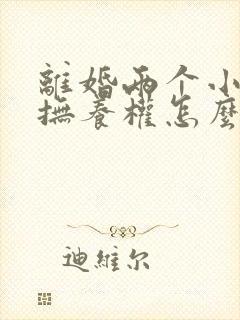 離婚兩个小
撫養權怎麼
迪維尔